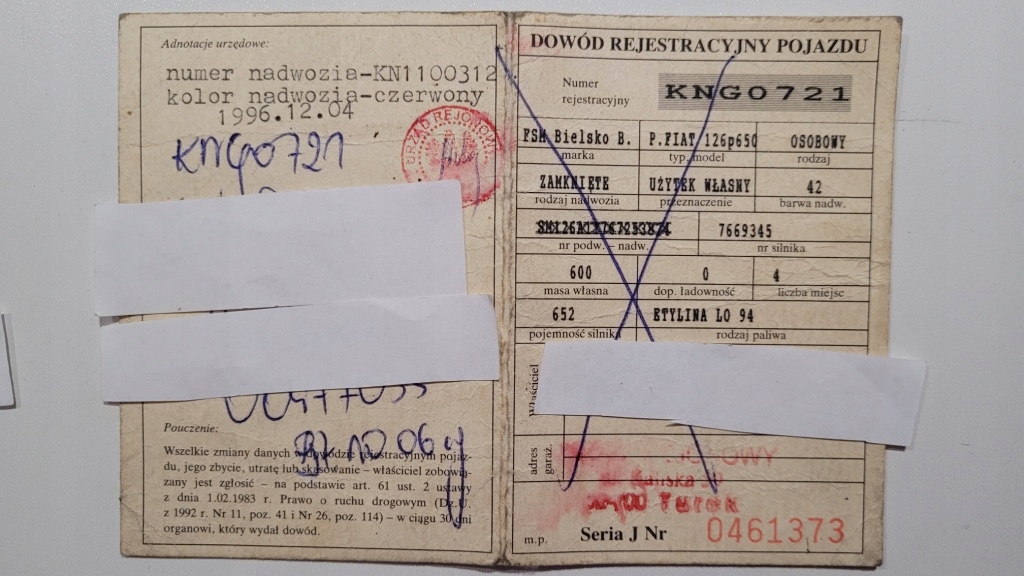 Adnotacje urzędowe:
numer nadwozia-KN1100312
kolor nadwozia-czerwony
1996.12.04
URZĄD REJONOWY
KNGO721
Pouczenie:
Wszelkie zmiany danych w dowodzie rejestracyjnym pojaz-
du, jego zbycie, utratę lub skasowanie – właściciel zobowią-
zany jest zgłosić – na podstawie art. 61 ust. 2 ustawy
z dnia 1.02.1983 r. Prawo o ruchu drogowym (Dz.U.
z 1992 r. Nr 11, poz. 41 i Nr 26, poz. 114) – w ciągu 30 dni
organowi, który wydał dowód.
DOWÓD REJESTRACYJNY POJAZDU
Numer
rejestracyjny
KNGO721
FSM Bielsko B. P.FIAT 126p650 OSOBOWY
marka typ, model rodzaj
ZAMKNIĘTE UŻYTEK WŁASNY 42
rodzaj nadwozia przeznaczenie barwa nadw.
7669345
nr podw. – nadw. nr silnika
600 0 4
masa własna dop. ładowność liczba miejsc
652 ETYLINA LO 94
pojemność silnika rodzaj paliwa
właściciel
adres
garaż.
Turek
m.p. Seria J Nr 0461373